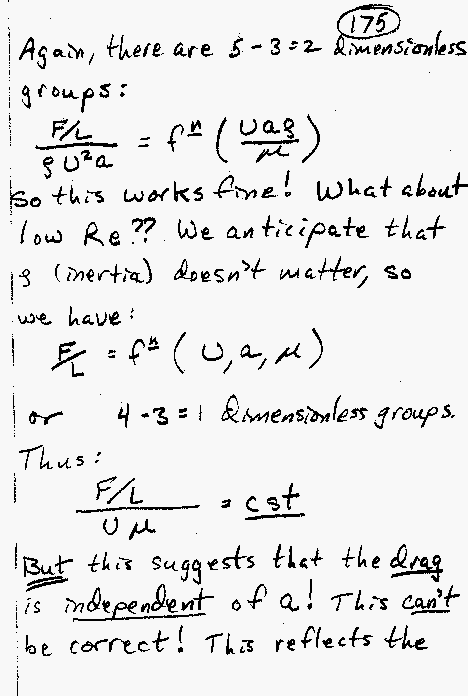 175
Again, there are 5-3=2 dimensionless
groups:
F/L / ρU²a = fⁿ (Uaρ/μ)
So this works fine! What about
low Re?? We anticipate that
ρ (inertia) doesn't matter, so
we have:
F/L = fⁿ (U, a, μ)
or 4-3=1 dimensionless groups.
Thus:
F/L / Uμ = cst
But this suggests that the drag
is independent of a! This can't
be correct! This reflects the